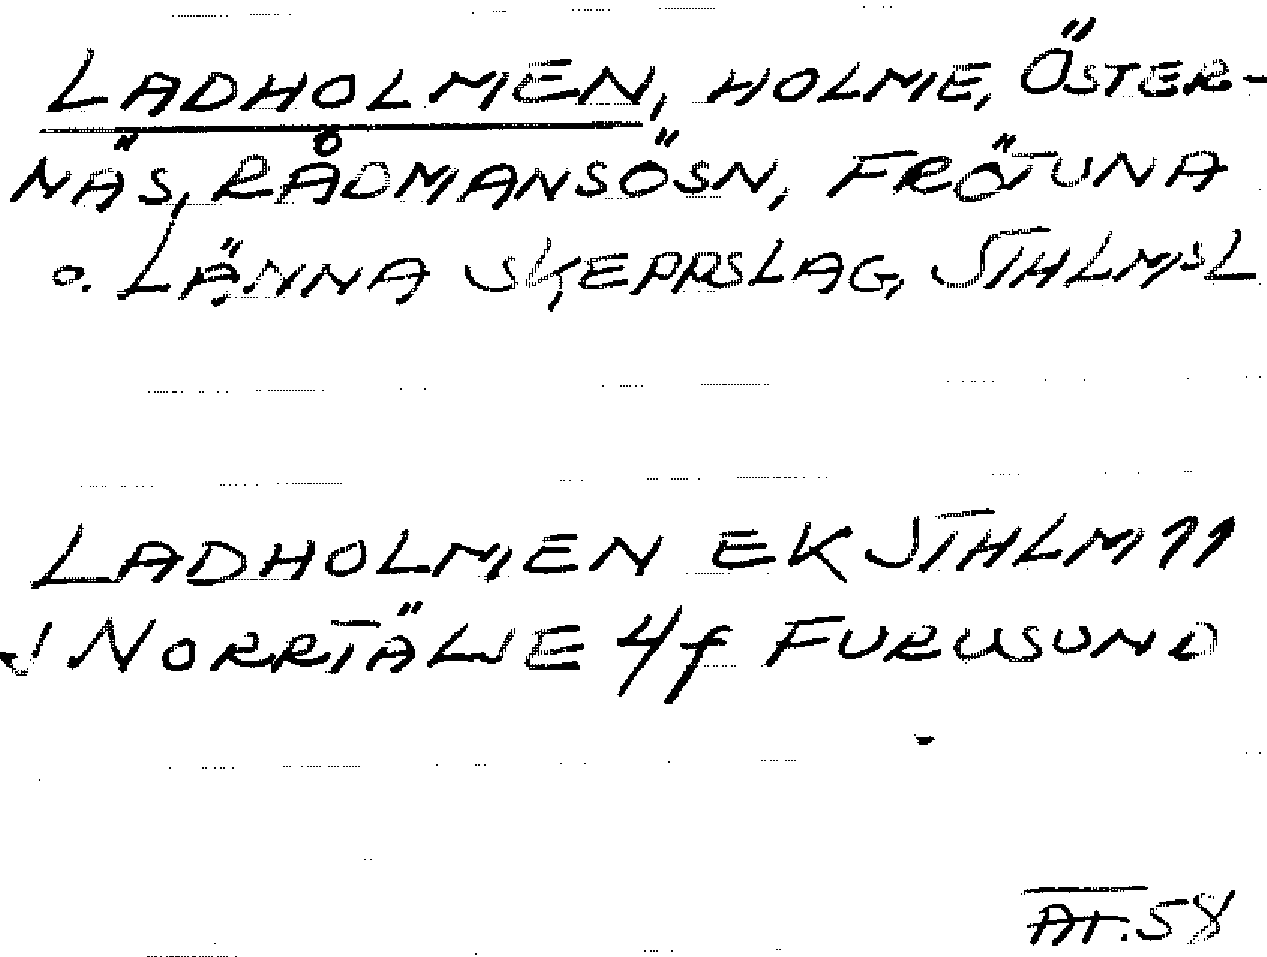 LADHOLMEN, HOLME, ÖSTER-
NÄS, RÅDMANSÖSN, FRÖTUNA
o. LÄNNA SKEPPSLAG, STHLMSL
LADHOLMEN EK STHLM 11
J NORRTÄLJE 4f FURUSUND
AT.58